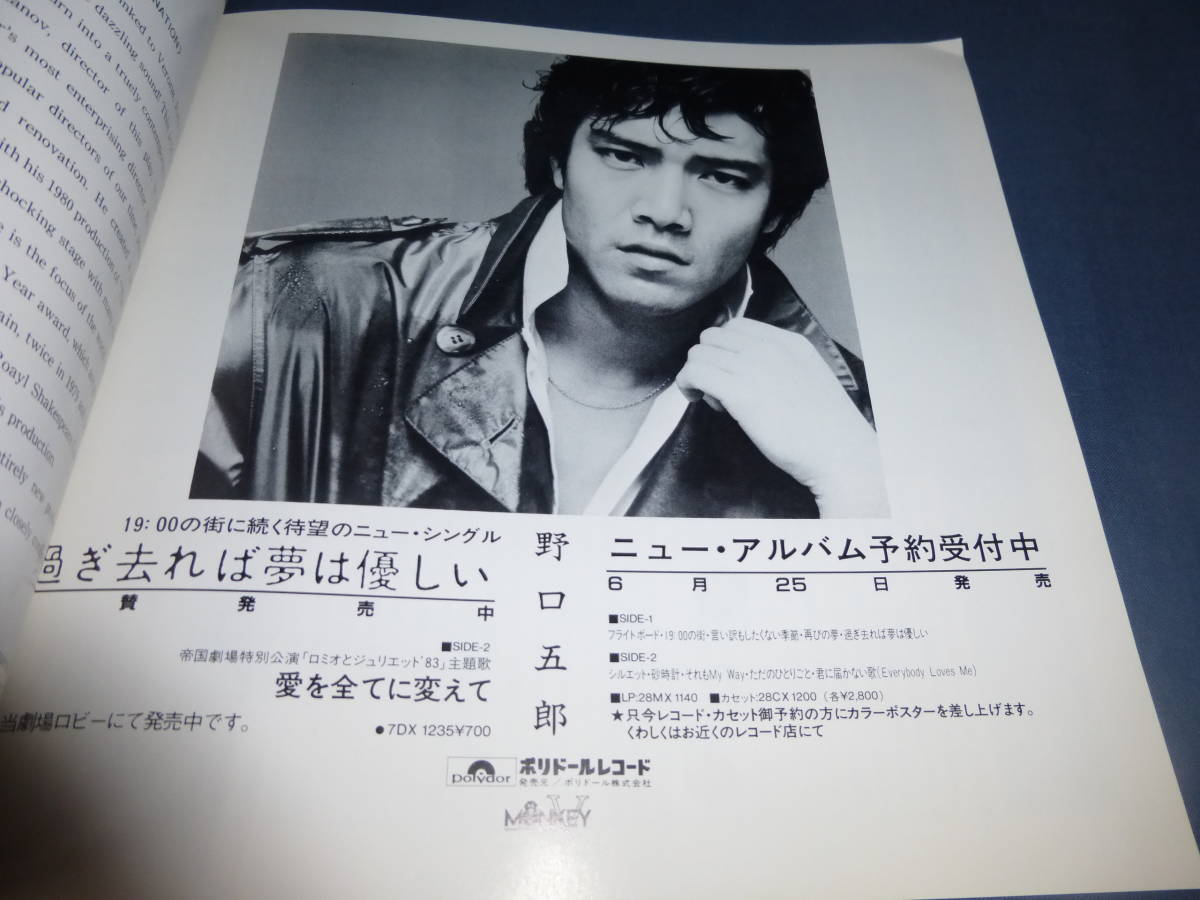 NATION)
inked to Verona
dazzling sound! This
urn into a truely contem
anov, director of this play
e's most enterprising director
opular directors of our time
d renovation. He created
with his 1980 production of
shocking stage with
e is the focus of the
Year award, which
ain, twice in 1975
Roayl Shakespeare
's production
ntirely new
closely
19:00の街に続く待望のニュー・シングル
過ぎ去れば夢は優しい
賛発売中
■SIDE-2
帝国劇場特別公演「ロミオとジュリエット'83」主題歌
愛を全てに変えて
当劇場ロビーにて発売中です。
●7DX 1235¥700
野口五郎
ニュー・アルバム予約受付中
6月25日発売
■SIDE-1
フライトボード・19:00の街・言い訳もしたくない季節・再びの夢・過ぎ去れば夢は優しい
■SIDE-2
シルエット・砂時計・それもMy Way・ただのひとりごと・君に届かない歌(Everybody Loves Me)
■LP:28MX1140 ■カセット:28CX1200(各¥2,800)
★只今レコード・カセット御予約の方にカラーポスターを差し上げます。
くわしくはお近くのレコード店にて
polydor
ポリドールレコード
発売元/ポリドール株式会社
MONKEY V